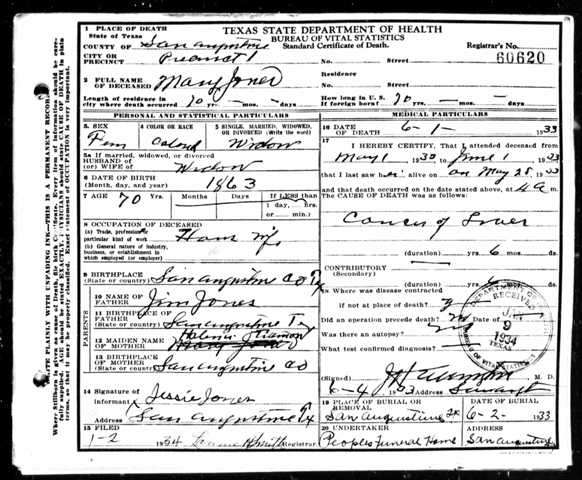 1 PLACE OF DEATH
TEXAS STATE DEPARTMENT OF HEALTH
BUREAU OF VITAL STATISTICS
COUNTY OF San Augustine Standard Certificate of Death. Registrar's No.
CITY OR PRECINCT Precinct 1 No. Street 60620
2 FULL NAME OF DECEASED Mary Jones Residence No. Street
Length of residence in city where death occurred 70 yrs. mos. days How long in U. S. if foreign born? 70 yrs. mos. days
PERSONAL AND STATISTICAL PARTICULARS
3. SEX 4 COLOR OR RACE 5 SINGLE, MARRIED, WIDOWED, OR DIVORCED (Write the word)
Fem Colored Widow
5a If married, widowed, or divorced
HUSBAND OF (or) WIFE OF Widow
6 DATE OF BIRTH (Month, day, and year) 1863
7 AGE 70 Months Days If LESS than 1 day, hrs. or min.
8 OCCUPATION OF DECEASED
(a) Trade, profession or particular kind of work
(b) General nature of industry, business, or establishment in which employed (or employer)
9 BIRTHPLACE (State or country) San Augustine Co Tx
PARENTS
10 NAME OF FATHER Jim Jones
11 BIRTHPLACE OF FATHER (State or country) San Augustine Tex
12 MAIDEN NAME OF MOTHER
13 BIRTHPLACE OF MOTHER (State or country) San Augustine Co
14 Signature of informant Jessie Jones
Address San Augustine Tx
15 FILED 1-2 1934 Registrar
MEDICAL PARTICULARS
16 DATE OF DEATH 6-1- 1933
17 I HEREBY CERTIFY, That I attended deceased from
May 1 1933 to June 1 1933
that I last saw her alive on May 28 1933
and that death occurred on the date stated above, at 4 a m.
The CAUSE OF DEATH was as follows:
Cancer of Liver
(duration) yrs. 6 mos. ds.
CONTRIBUTORY (Secondary)
(duration) yrs. mos. ds.
18 Where was disease contracted if not at place of death?
Did an operation precede death? no Date of
Was there an autopsy? no
What test confirmed diagnosis?
RECEIVED
9
1934
VITAL STATISTICS
(Signed) M. D.
6-4 1933 (Address)
19 PLACE OF BURIAL OR REMOVAL DATE OF BURIAL
San Augustine Tx 6-2- 1933
20 UNDERTAKER Address
Peoples Funeral Home San Augustine